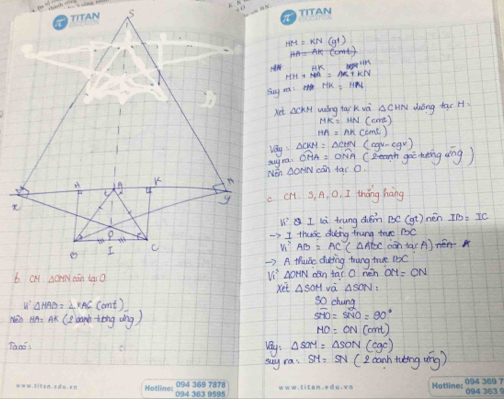 TITAN
S
H
A
K
x
y
O
B
I
C
b. CM △OMN cân tại O
Vì △HAB = △KAC (cmt)
Nên HA = AK (2 cạnh tương ứng)
Ta có:
www.titan.edu.vn
Hotline: 094 369 7878
094 363 9595
TITAN
HM = KN (gt)
HA = AK (cmt)
Suy ra: MK = HN
Xét △CKM vuông tại K và △CHN vuông tại H:
MK = HN (cmt)
HA = AK (cmt)
Vậy: △CKM = △CHN (cgv - cgv)
suy ra: OMA = ONA (2 cạnh góc tương ứng)
Nên △OMN cân tại O.
c. CM. S, A, O, I thẳng hàng
Vì I là trung điểm BC (gt) nên IB = IC
→ I thuộc đường trung trực BC
Vì AB = AC (△ABC cân tại A) nên
→ A thuộc đường trung trực BC
Vì △OMN cân tại O nên OM = ON
Xét △SOM và △SON:
SO chung
SMO = SNO = 90°
MO = ON (cmt)
Vậy: △SOM = △SON (cgc)
suy ra: SM = SN (2 cạnh tương ứng)
www.titan.edu.vn
Hotline: 094 369 7
094 363 9